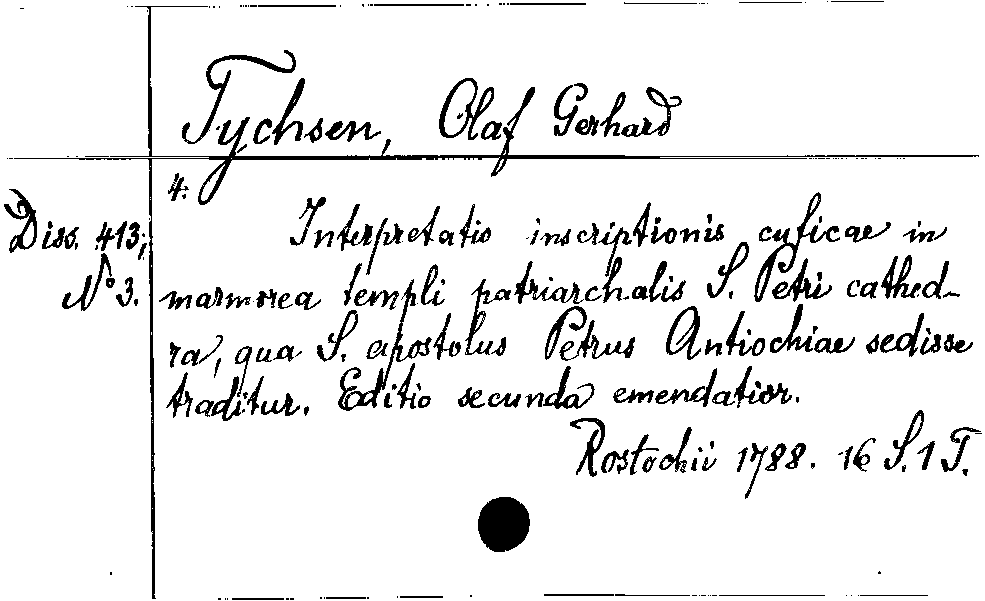 Tychsen, Olaf Gerhard
4.
Diss. 413,
N° 3.
Interpretatio inscriptionis cuficae in
marmorea templi patriarchalis S. Petri cathed-
ra, qua S. apostolus Petrus Antiochiae sedisse
traditur. Editio secunda emendatior.
Rostochii 1788. 16 S. 1 T.